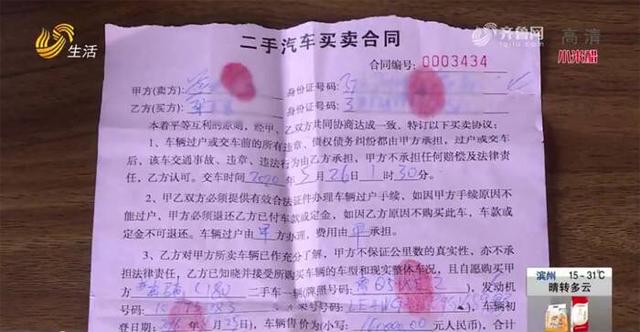 生活
齐鲁网
高清
小米醋
二手汽车买卖合同
合同编号：0003434
甲方(卖方)： 身份证号码：
乙方(买方)： 身份证号码：
本着平等互利的原则，经甲、乙双方共同协商达成一致、特订以下买卖协议：
1、车辆过户或交车前的所有违章、债权债务纠纷都由甲方承担，过户或交车
后，该车交通事故、违章、违法行为由乙方承担，甲方不承担任何赔偿及法律责
任，乙方认可。交车时间2020年5月26日1时30分。
2、甲乙双方必须提供有效合法证件办理车辆过户手续，如因甲方手续原因不
能过户，甲方必须退还乙方已付车款或定金，如因乙方原因不购买此车、车款或
定金不可退还。车辆过户由甲方办理，费用由甲承担。
3、乙方对甲方所卖车辆已作充分了解，甲方不保证公里数的真实性，亦不承
担法律责任，乙方已知晓并接受所购买车辆的车型和现实整体车况，且自愿购买甲
方 C180 二手车一辆(牌照号码： )，发动机
号码： ，车辆初
登日期： 年 月25日，车辆售价为(小写： 元人民币)，合计
滨州 15～31℃
晴转多云